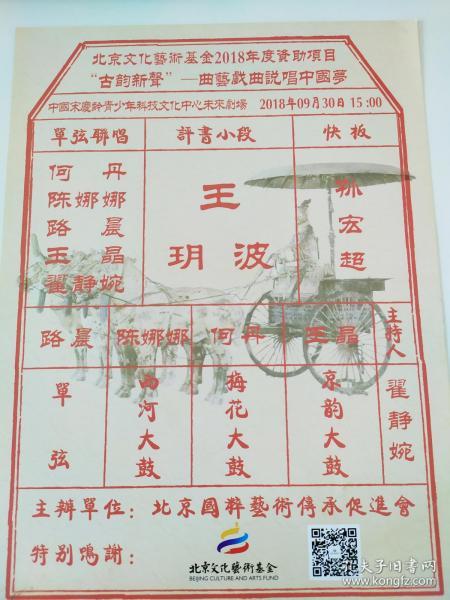 北京文化藝術基金2018年度資助項目
“古韵新聲”—曲藝戲曲説唱中國夢
中國宋慶齡青少年科技文化中心未來劇場 2018年09月30日 15:00
單弦聯唱 評書小段 快板
何丹
陈娜娜
路晨
王晶
翟静婉
王玥波
孙宏超
路晨 陈娜娜 何丹 王晶 主持人
單弦 西河大鼓 梅花大鼓 京韵大鼓 翟静婉
主辦單位：北京國粹藝術傳承促進會
特别鳴謝：
北京文化藝術基金
BEIJING CULTURE AND ARTS FUND
孔夫子旧书网